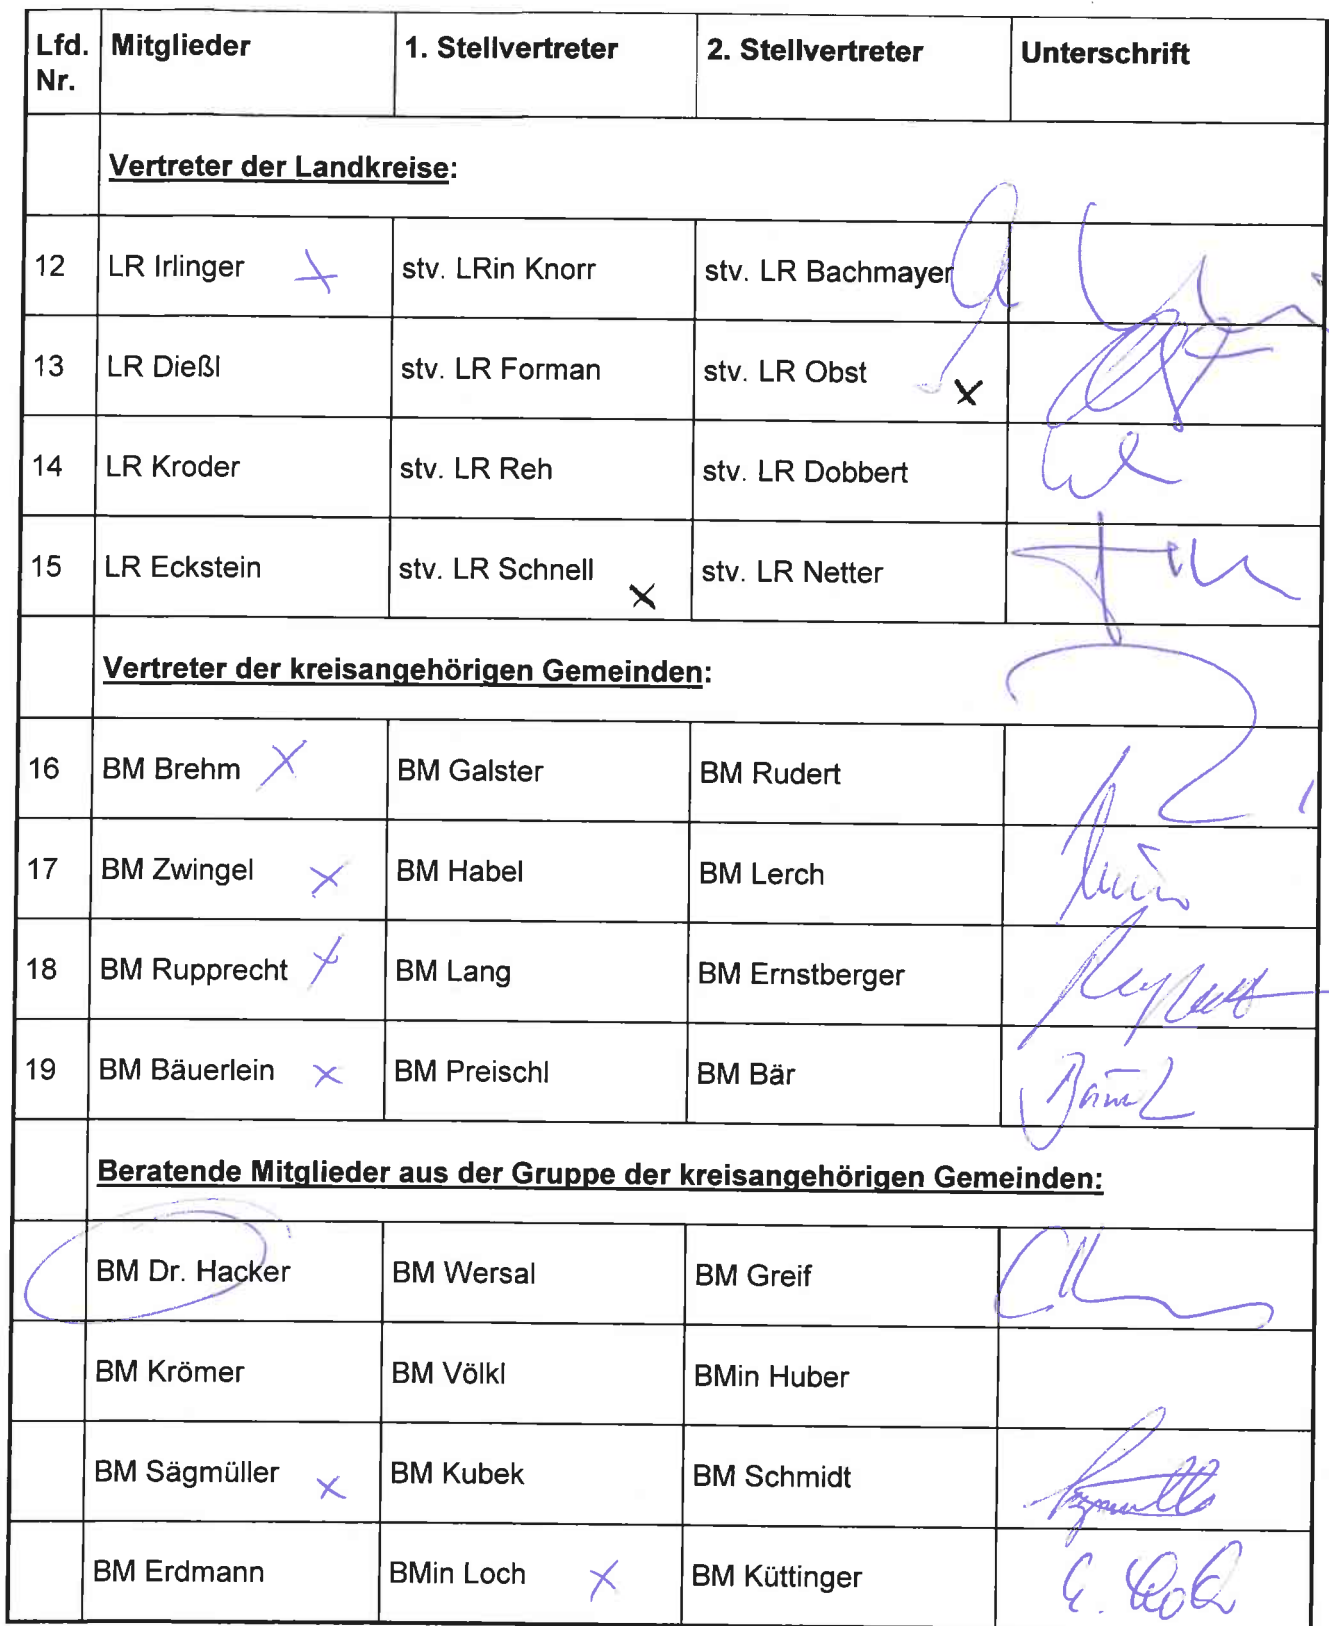 Lfd. Nr. Mitglieder 1. Stellvertreter 2. Stellvertreter Unterschrift
Vertreter der Landkreise:
12 LR Irlinger x stv. LRin Knorr stv. LR Bachmayer
13 LR Dießl stv. LR Forman stv. LR Obst x
14 LR Kroder stv. LR Reh stv. LR Dobbert
15 LR Eckstein stv. LR Schnell x stv. LR Netter
Vertreter der kreisangehörigen Gemeinden:
16 BM Brehm x BM Galster BM Rudert
17 BM Zwingel x BM Habel BM Lerch
18 BM Rupprecht x BM Lang BM Ernstberger
19 BM Bäuerlein x BM Preischl BM Bär
Beratende Mitglieder aus der Gruppe der kreisangehörigen Gemeinden:
BM Dr. Hacker BM Wersal BM Greif
BM Krömer BM Völkl BMin Huber
BM Sägmüller x BM Kubek BM Schmidt
BM Erdmann BMin Loch x BM Küttinger